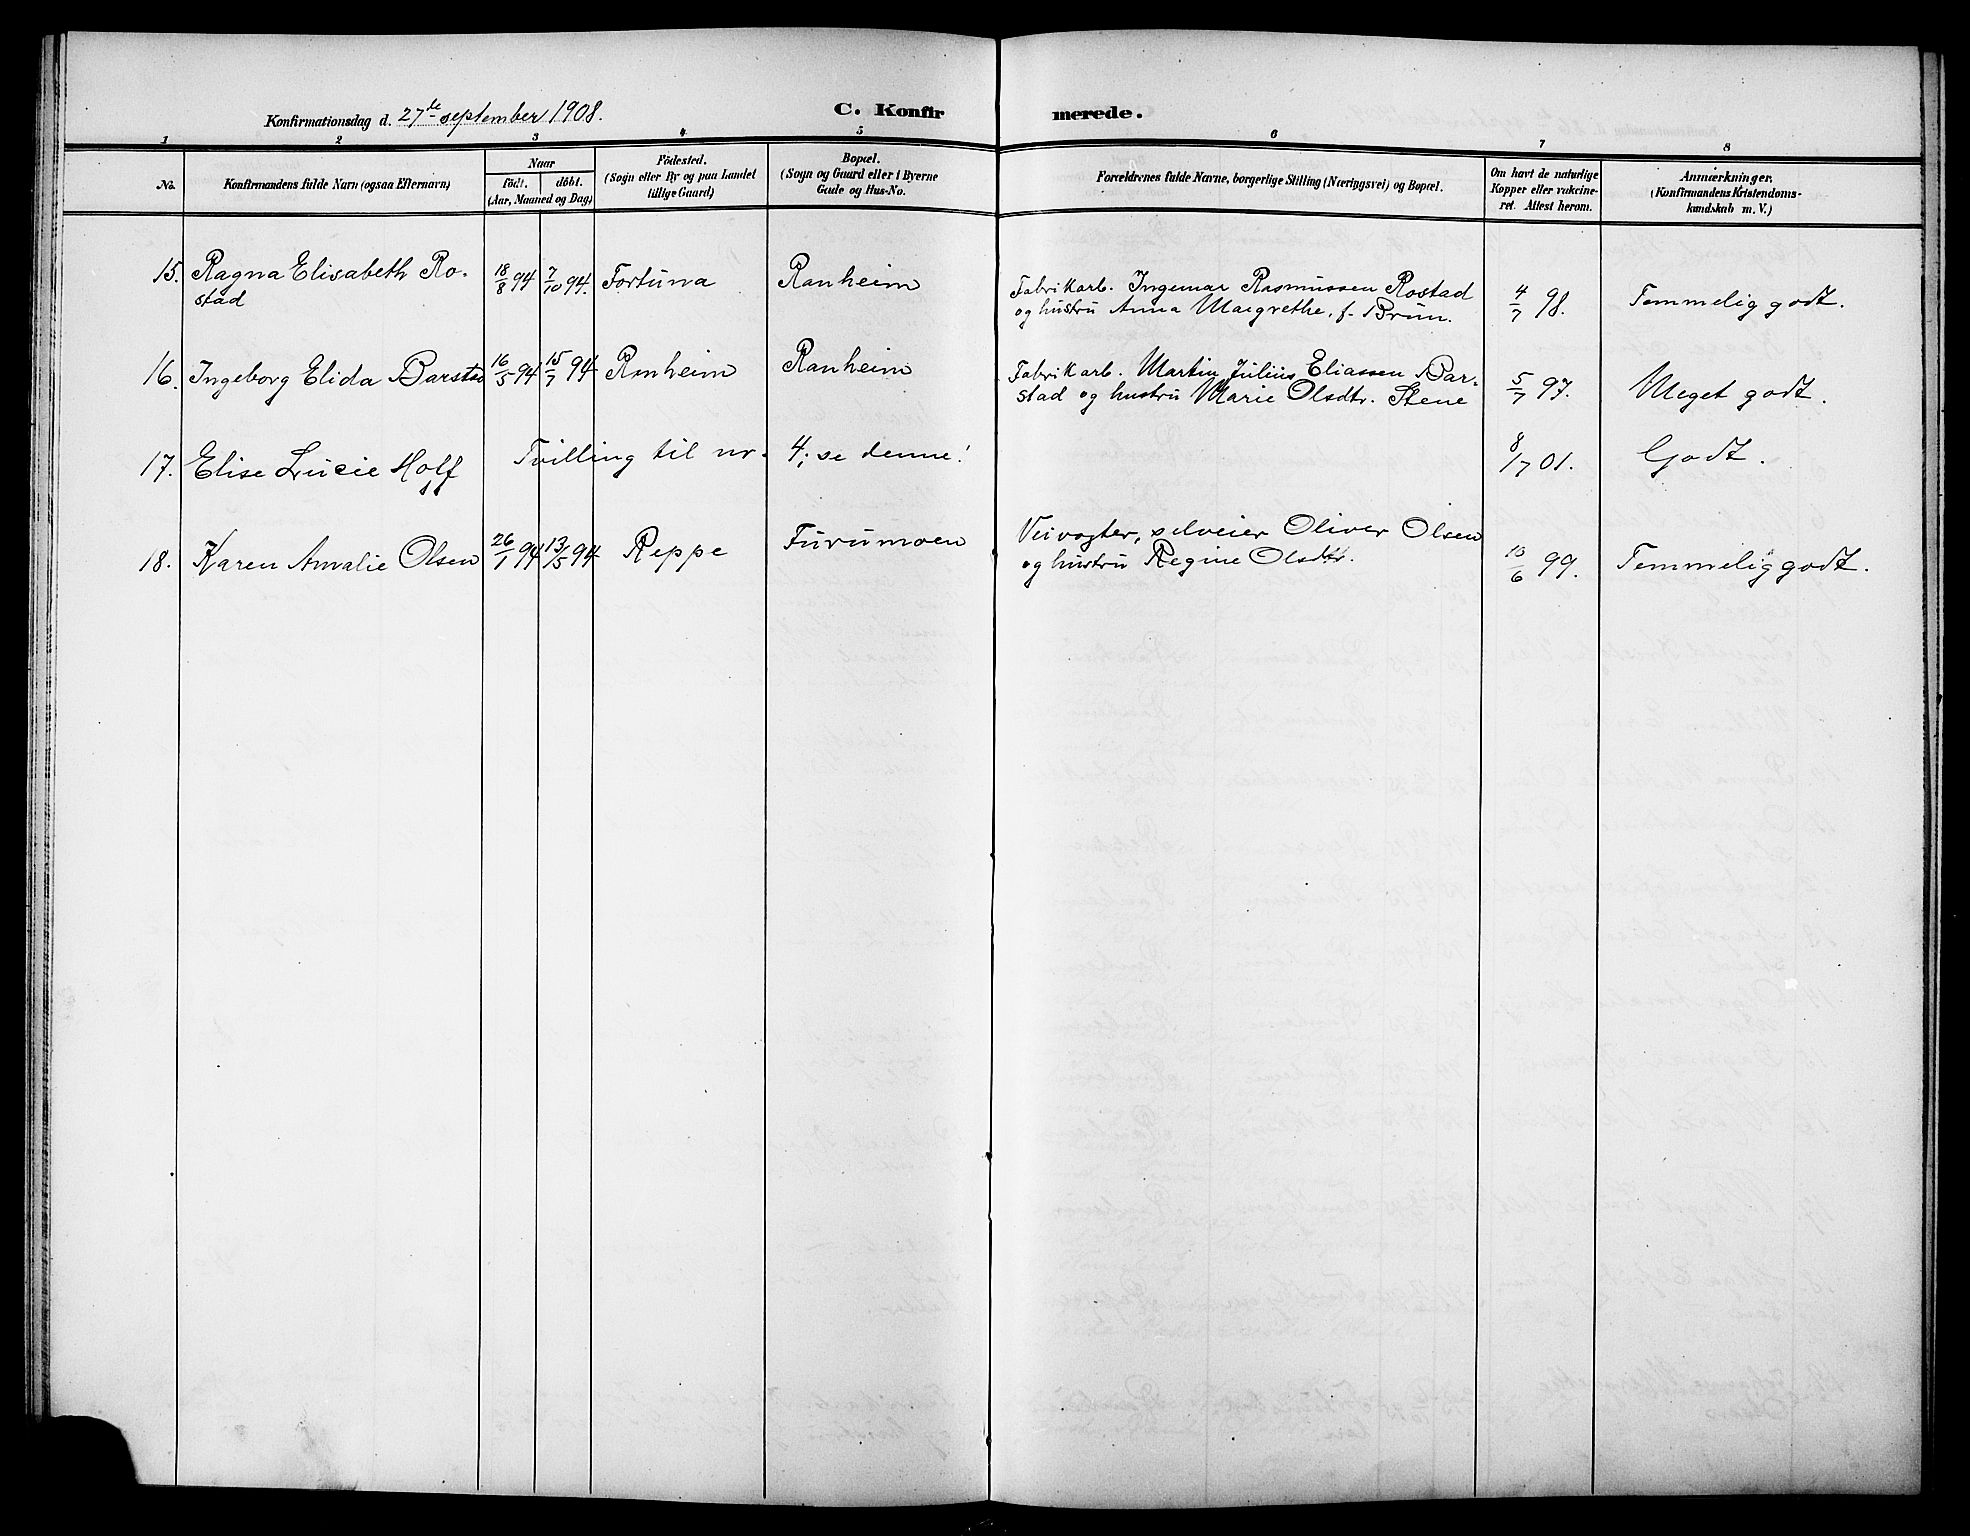 Konfirmationsdag d. 27de september 1908.
C. Konfir
merede.
1 2 3 4 5 6 7 8
No.
Konfirmandens fulde Navn (ogsaa Efternavn)
Naar
födt. döbt.
(Aar, Maaned og Dag)
Födested.
(Sogn eller By og paa Landet
tillige Gaard)
Bopæl.
(Sogn og Gaard eller i Byerne
Gade og Hus-No.
Forældrenes fulde Navne, borgerlige Stilling (Næringsvei) og Bopæl.
Om havt de naturlige
Kopper eller vakcine-
ret. Attest herom.
Anmærkninger,
(Konfirmandens Kristendoms-
kundskab m. V.)
15. Ragna Elisabeth Ro- 18/8 94 7/10 94. Fortuna Ranheim Fabrikarb. Ingemar Rasmussen Rostad 4/7 98. Temmelig godt.
stad og hustru Anna Margrethe, f. Brun.
16. Ingeborg Elida Barstad 16/5 94 15/7 94 Ranheim Ranheim Fabrikarb. Martin Julius Eliassen Bar- 5/7 97. Meget godt.
stad og hustru Marie Olsdtr. Stene
17. Elise Lucie Hoff Tvilling til nr. 4; se denne! 8/7 01. Godt.
18. Karen Amalie Olsen 26/1 94 13/5 94 Reppe Furumoen Veivogter, selveier Oliver Olsen 10/6 99. Temmelig godt.
og hustru Regine Olsdtr.